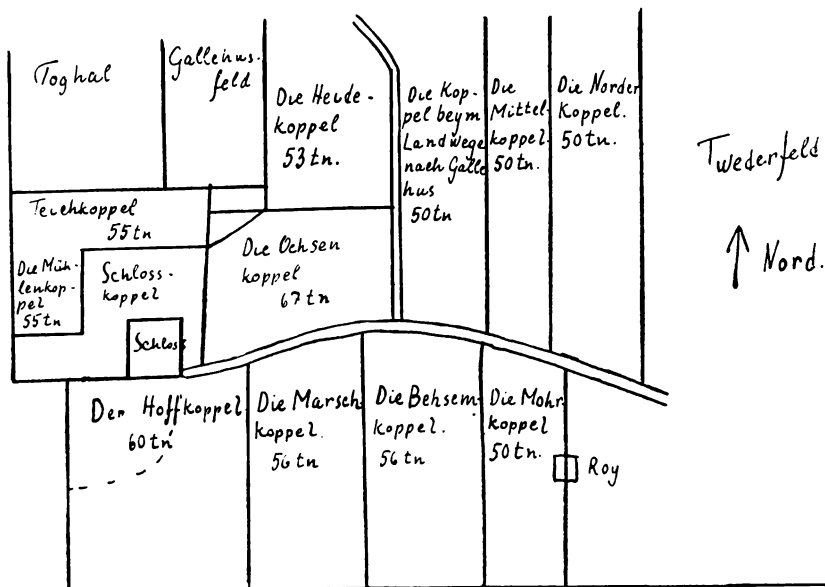 Toghal
Gallehus-
feld
Die Heide-
koppel
53 tn.
Die Kop-
pel beym
Landwege
nach Galle
hus
50 tn
Die
Mittel-
koppel.
50 tn.
Die Norder
Koppel.
50 tn.
Twederfeld
Nord.
Teichkoppel
55 tn
Die Müh-
lenkop-
pel
55 tn
Schloss-
koppel
Schloss
Die Ochsen
koppel
67 tn
Der Hoffkoppel.
60 tn
Die Marsch-
koppel.
56 tn
Die Behsem-
koppel.
56 tn
Die Mohr-
koppel
50 tn.
Roy